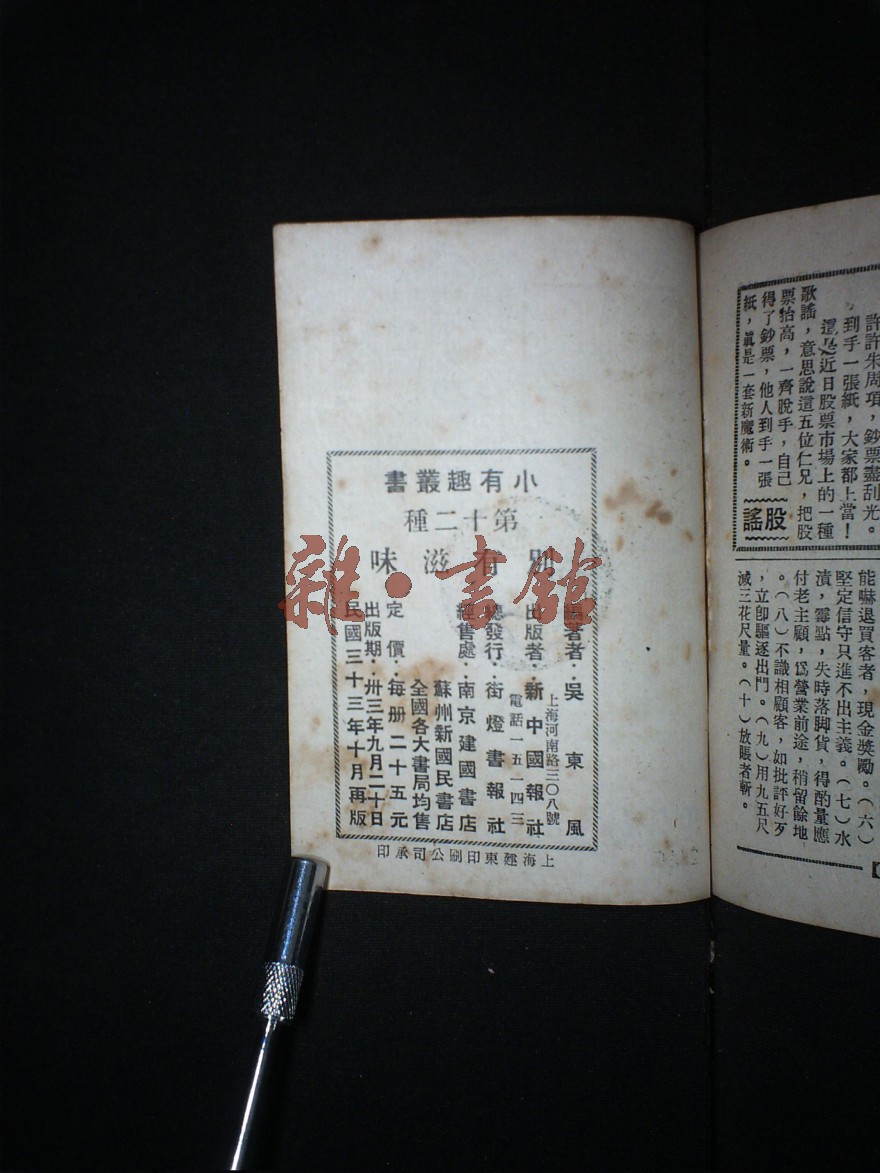 許許朱周項，鈔票盡刮光。
到手一張紙，大家都上當！
近日股票市場上的一種
歌謠，意思說這五位仁兄，把股
票抬高，一齊脫手，自己
得了鈔票，他人到手一張
紙，眞是一套新魔術。
股謠
能嚇退買客者，現金獎勵。（六）
堅定信守只進不出主義。（七）水
漬，霉點，失時落脚貨，得酌量應
付老主顧，爲營業前途，稍留餘地
。（八）不識相顧客，如批評好歹
，立卽驅逐出門。（九）用九五尺
減三花尺量。（十）放賬者斬。
小有趣叢書
第十二種
別有滋味
編著者：吳東風
上海河南路三〇八號
出版者：新中國報社
電話一五一四三
總發行：街燈書報社
經售處：南京建國書店
蘇州新國民書店
全國各大書局均售
定價：每册二十五元
出版期：卅三年九月二十日
民國三十三年十月再版
上海建東印刷公司承印
雜·書館